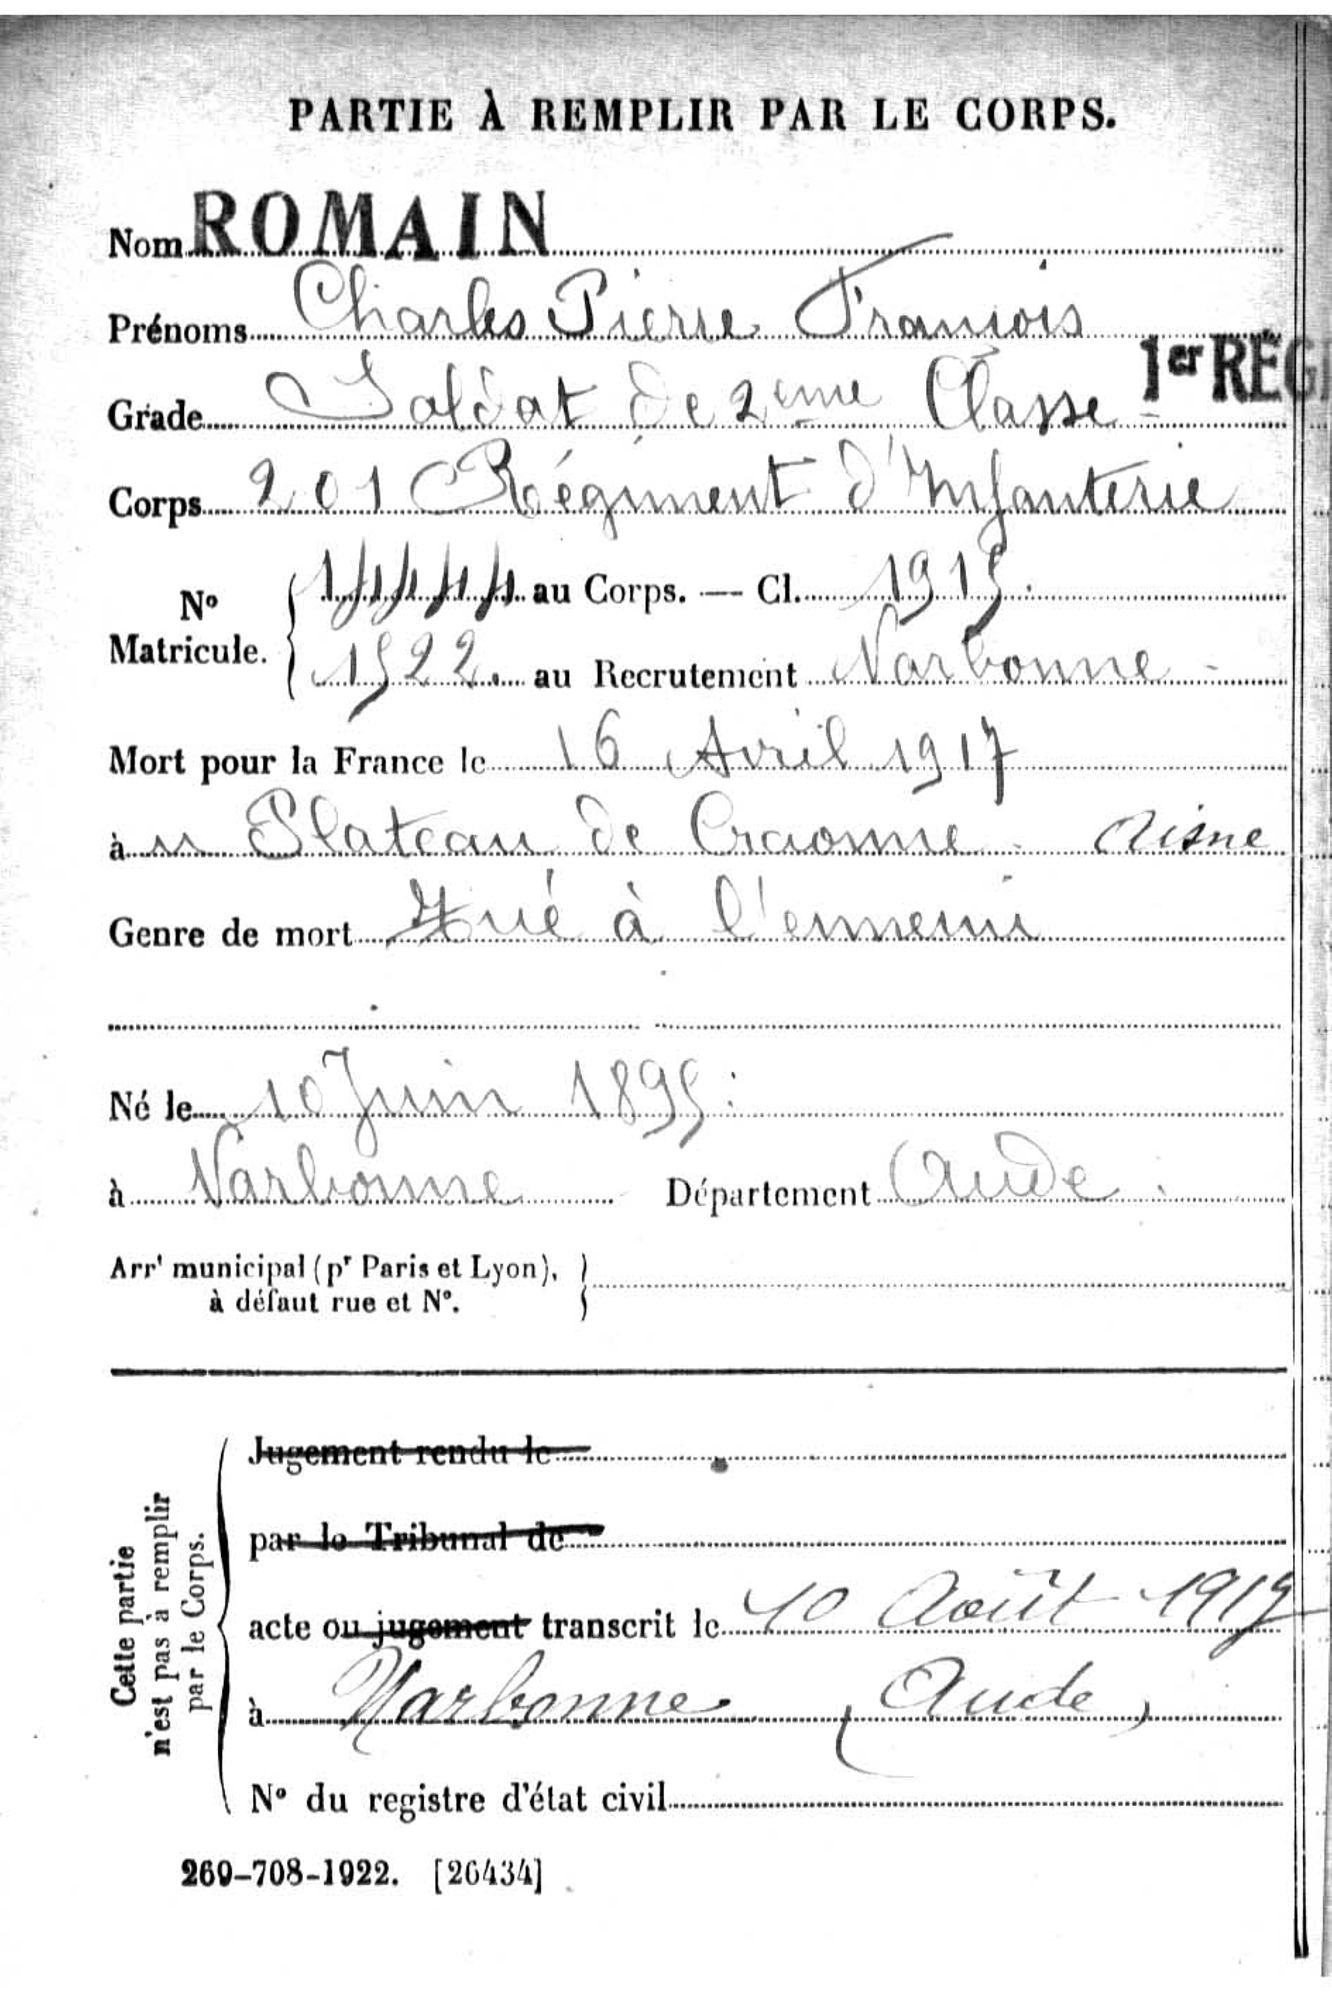 PARTIE À REMPLIR PAR LE CORPS.
Nom ROMAIN
Prénoms Charles Pierre François
1er RÉG
Grade Soldat de 2eme Classe
Corps 201 Régiment d'Infanterie
N° Matricule. 14444 au Corps. — Cl. 1915.
1522. au Recrutement Narbonne -
Mort pour la France le 16 Avril 1917
à Plateau de Craonne - Aisne
Genre de mort Tué à l'ennemi
Né le 10 Juin 1895
à Narbonne Département Aude.
Arrt municipal (pr Paris et Lyon),
à défaut rue et N°.
Cette partie
n'est pas à remplir
par le Corps.
Jugement rendu le
par le Tribunal de
acte ou jugement transcrit le 10 Août 1917
à Narbonne (Aude)
N° du registre d'état civil
269-708-1922. [26434]